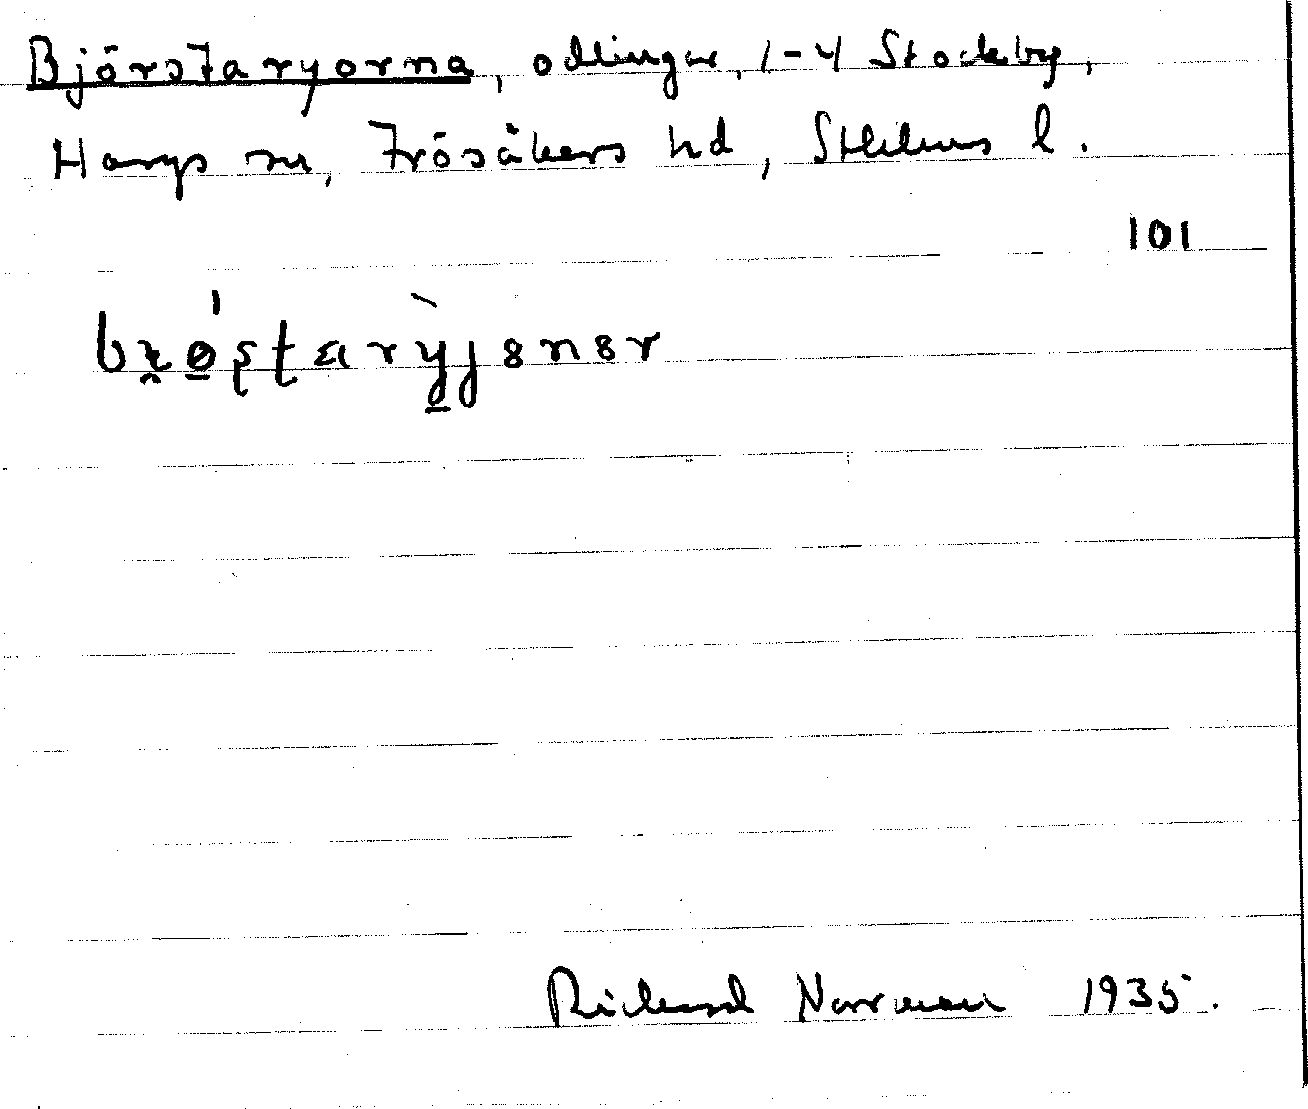 Björstaryorna, odlingar, 1-4 Stockby,
Hargs sn, Frösåkers hd, Sthlms l.
101
Richard Norrman 1935.